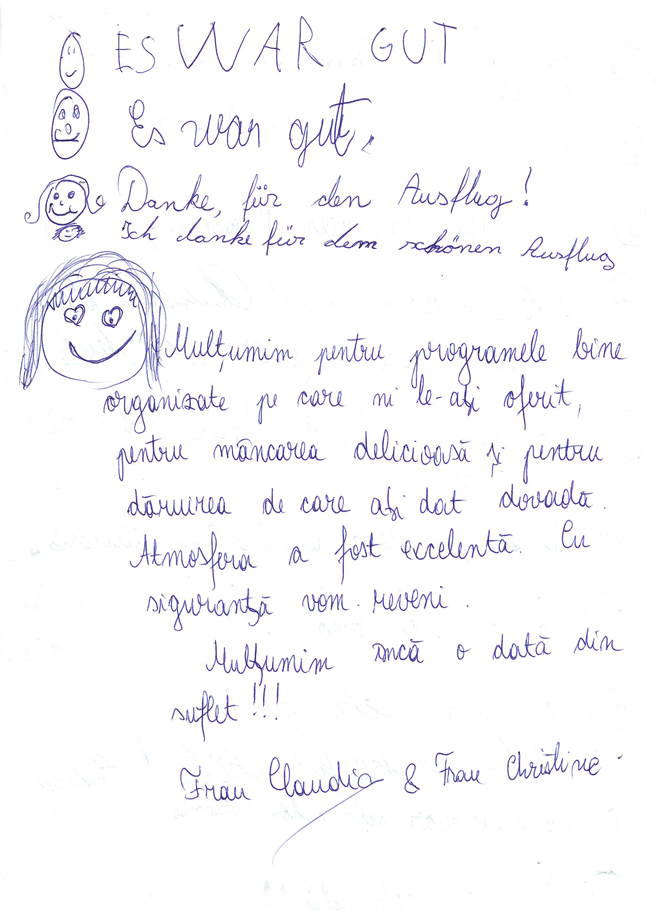 ES WAR GUT
Es war gut.
Danke, für den Ausflug!
Ich danke für dem schönen Ausflug
Mulțumim pentru programele bine
organizate pe care ni le-ați oferit,
pentru mâncarea delicioasă și pentru
dăruirea de care ați dat dovadă.
Atmosfera a fost excelentă. Cu
siguranță vom reveni.
Mulțumim încă o dată din
suflet!!!
Frau Claudia & Frau Christine